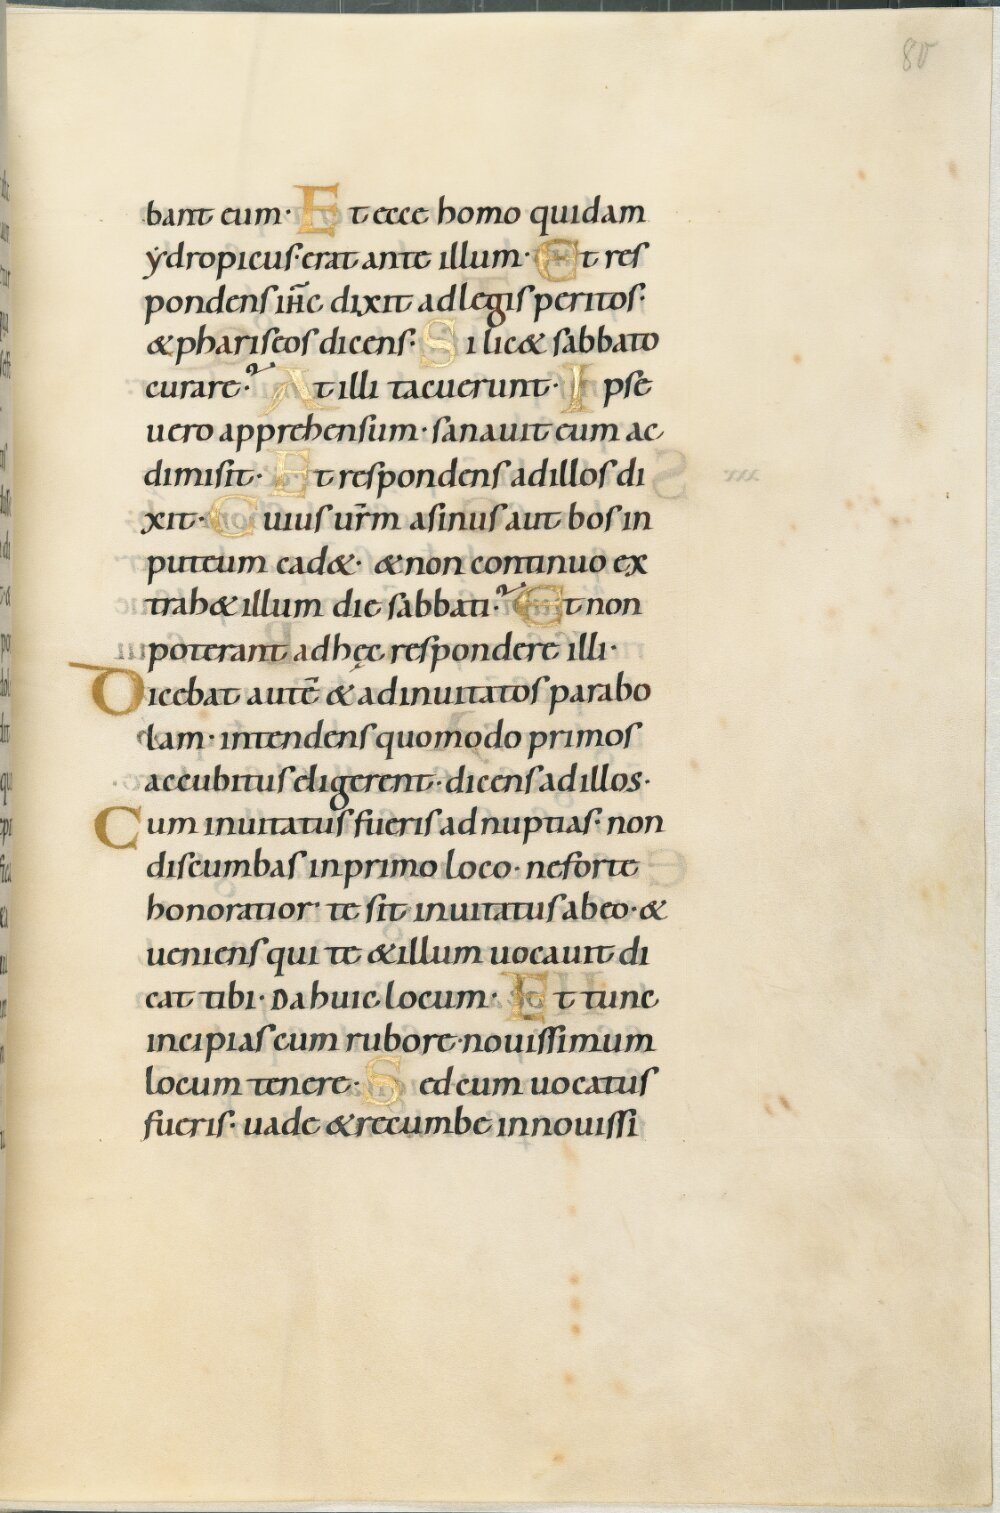 80
bant eum· Et ecce homo quidam
ẏdropicus· erat ante illum· Et res
pondens ih̅c dixit ad legis peritos·
& phariseos dicens· Si lic& sabbato
curare·? At illi tacuerunt· Ipse
uero apprehensum· sanauit eum ac
dimisit· Et respondens ad illos di
xit· Cuius ur̅m asinus aut bos in
puteum cad&· & non continuo ex
trah& illum die sabbati·? Et non
poterant ad hęc respondere illi·
Dicebat aute̅ & ad inuitatos parabo
lam· intendens quomodo primos
accubitus eligerent· dicens ad illos·
Cum inuitatus fueris ad nuptias· non
discumbas in primo loco· ne forte
honoratior te sit inuitatus ab eo· &
ueniens qui te & illum uocauit di
cat tibi· Da huic locum· Et tunc
incipias cum rubore nouissimum
locum tenere· Sed cum uocatus
fueris· uade & recumbe in nouissi